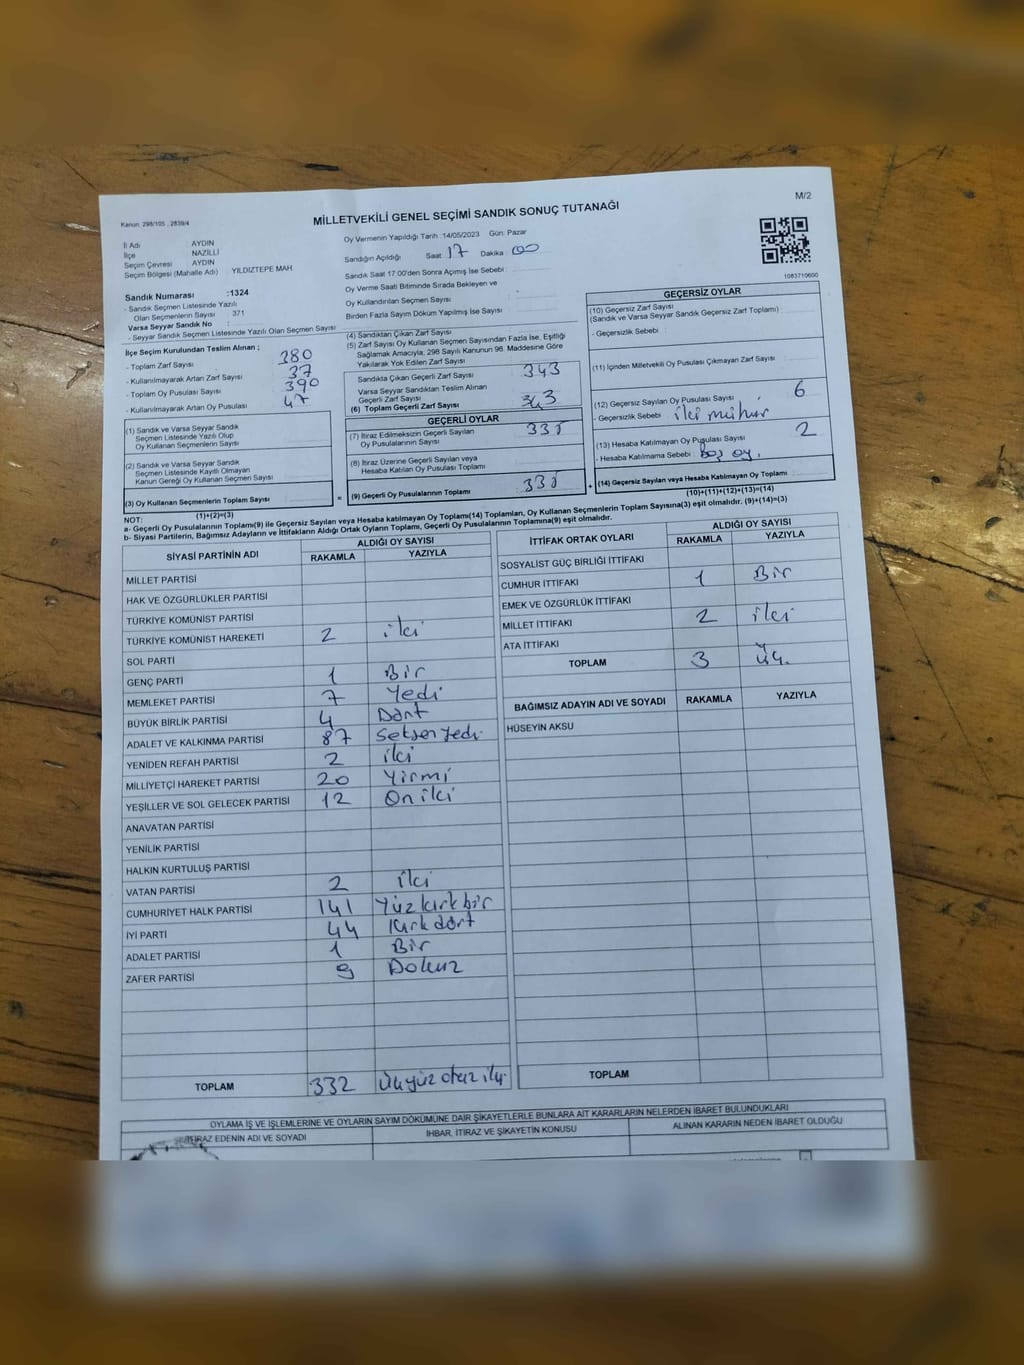 M/2
Kanun: 298/105 , 2839/4
MİLLETVEKİLİ GENEL SEÇİMİ SANDIK SONUÇ TUTANAĞI
İl Adı AYDIN
İlçe NAZİLLİ
Seçim Çevresi AYDIN
Seçim Bölgesi (Mahalle Adı) : YILDIZTEPE MAH.
Oy Vermenin Yapıldığı Tarih : 14/05/2023 Gün: Pazar
Sandığın Açıldığı Saat 17 Dakika 00
Sandık Saat 17:00'den Sonra Açımış İse Sebebi :
Oy Verme Saati Bitiminde Sırada Bekleyen ve
Oy Kullandırılan Seçmen Sayısı
Birden Fazla Sayım Döküm Yapılmış İse Sayısı
1083710600
Sandık Numarası :1324
- Sandık Seçmen Listesinde Yazılı
Olan Seçmenlerin Sayısı : 371
Varsa Seyyar Sandık No :
- Seyyar Sandık Seçmen Listesinde Yazılı Olan Seçmen Sayısı
İlçe Seçim Kurulundan Teslim Alınan ;
- Toplam Zarf Sayısı 380
- Kullanılmayarak Artan Zarf Sayısı 37
- Toplam Oy Pusulası Sayısı 390
- Kullanılmayarak Artan Oy Pusulası 47
(1) Sandık ve Varsa Seyyar Sandık
Seçmen Listesinde Yazılı Olup
Oy Kullanan Seçmenlerin Sayısı
(2) Sandık ve Varsa Seyyar Sandık
Seçmen Listesinde Kayıtlı Olmayan
Kanun Gereği Oy Kullanan Seçmen Sayısı
(3) Oy Kullanan Seçmenlerin Toplam Sayısı =
(1)+(2)=(3)
(4) Sandıktan Çıkan Zarf Sayısı
(5) Zarf Sayısı Oy Kullanan Seçmen Sayısından Fazla İse, Eşitliği
Sağlamak Amacıyla, 298 Sayılı Kanunun 98. Maddesine Göre
Yakılarak Yok Edilen Zarf Sayısı
Sandıkta Çıkan Geçerli Zarf Sayısı 343
Varsa Seyyar Sandıktan Teslim Alınan
Geçerli Zarf Sayısı
(6) Toplam Geçerli Zarf Sayısı 343
GEÇERLİ OYLAR
(7) İtiraz Edilmeksizin Geçerli Sayılan
Oy Pusulalarının Sayısı 335
(8) İtiraz Üzerine Geçerli Sayılan veya
Hesaba Katılan Oy Pusulası Toplamı
(9) Geçerli Oy Pusulalarının Toplamı 335 +
GEÇERSİZ OYLAR
(10) Geçersiz Zarf Sayısı
(Sandık ve Varsa Seyyar Sandık Geçersiz Zarf Toplamı)
- Geçersizlik Sebebi :
(11) İçinden Milletvekili Oy Pusulası Çıkmayan Zarf Sayısı
(12) Geçersiz Sayılan Oy Pusulası Sayısı 6
- Geçersizlik Sebebi : iki mühür
(13) Hesaba Katılmayan Oy Pusulası Sayısı 2
- Hesaba Katılmama Sebebi : Boş oy.
(14) Geçersiz Sayılan veya Hesaba Katılmayan Oy Toplamı
(10)+(11)+(12)+(13)=(14)
NOT:
a- Geçerli Oy Pusulalarının Toplamı(9) ile Geçersiz Sayılan veya Hesaba katılmayan Oy Toplamı(14) Toplamları, Oy Kullanan Seçmenlerin Toplam Sayısına(3) eşit olmalıdır. (9)+(14)=(3)
b- Siyasi Partilerin, Bağımsız Adayların ve İttifakların Aldığı Ortak Oyların Toplamı, Geçerli Oy Pusulalarının Toplamına(9) eşit olmalıdır.
SİYASİ PARTİNİN ADI ALDIĞI OY SAYISI
RAKAMLA YAZIYLA
MİLLET PARTİSİ
HAK VE ÖZGÜRLÜKLER PARTİSİ
TÜRKİYE KOMÜNİST PARTİSİ
TÜRKİYE KOMÜNİST HAREKETİ 2 iki
SOL PARTİ
GENÇ PARTİ 1 Bir
MEMLEKET PARTİSİ 7 Yedi
BÜYÜK BİRLİK PARTİSİ 4 Dört
ADALET VE KALKINMA PARTİSİ 87 Seksen yedi
YENİDEN REFAH PARTİSİ 2 iki
MİLLİYETÇİ HAREKET PARTİSİ 20 Yirmi
YEŞİLLER VE SOL GELECEK PARTİSİ 12 On iki
ANAVATAN PARTİSİ
YENİLİK PARTİSİ
HALKIN KURTULUŞ PARTİSİ
VATAN PARTİSİ 2 iki
CUMHURİYET HALK PARTİSİ 141 Yüz kırk bir
İYİ PARTİ 44 Kırk dört
ADALET PARTİSİ 1 Bir
ZAFER PARTİSİ 9 Dokuz
TOPLAM 332 Üçyüz otuz iki
İTTİFAK ORTAK OYLARI ALDIĞI OY SAYISI
RAKAMLA YAZIYLA
SOSYALİST GÜÇ BİRLİĞİ İTTİFAKI
CUMHUR İTTİFAKI 1 Bir
EMEK VE ÖZGÜRLÜK İTTİFAKI
MİLLET İTTİFAKI 2 iki
ATA İTTİFAKI
TOPLAM 3 Üç.
BAĞIMSIZ ADAYIN ADI VE SOYADI RAKAMLA YAZIYLA
HÜSEYİN AKSU
TOPLAM
OYLAMA İŞ VE İŞLEMLERİNE VE OYLARIN SAYIM DÖKÜMÜNE DAİR ŞİKAYETLERLE BUNLARA AİT KARARLARIN NELERDEN İBARET BULUNDUKLARI
İTİRAZ EDENİN ADI VE SOYADI İHBAR, İTİRAZ VE ŞİKAYETİN KONUSU ALINAN KARARIN NEDEN İBARET OLDUĞU